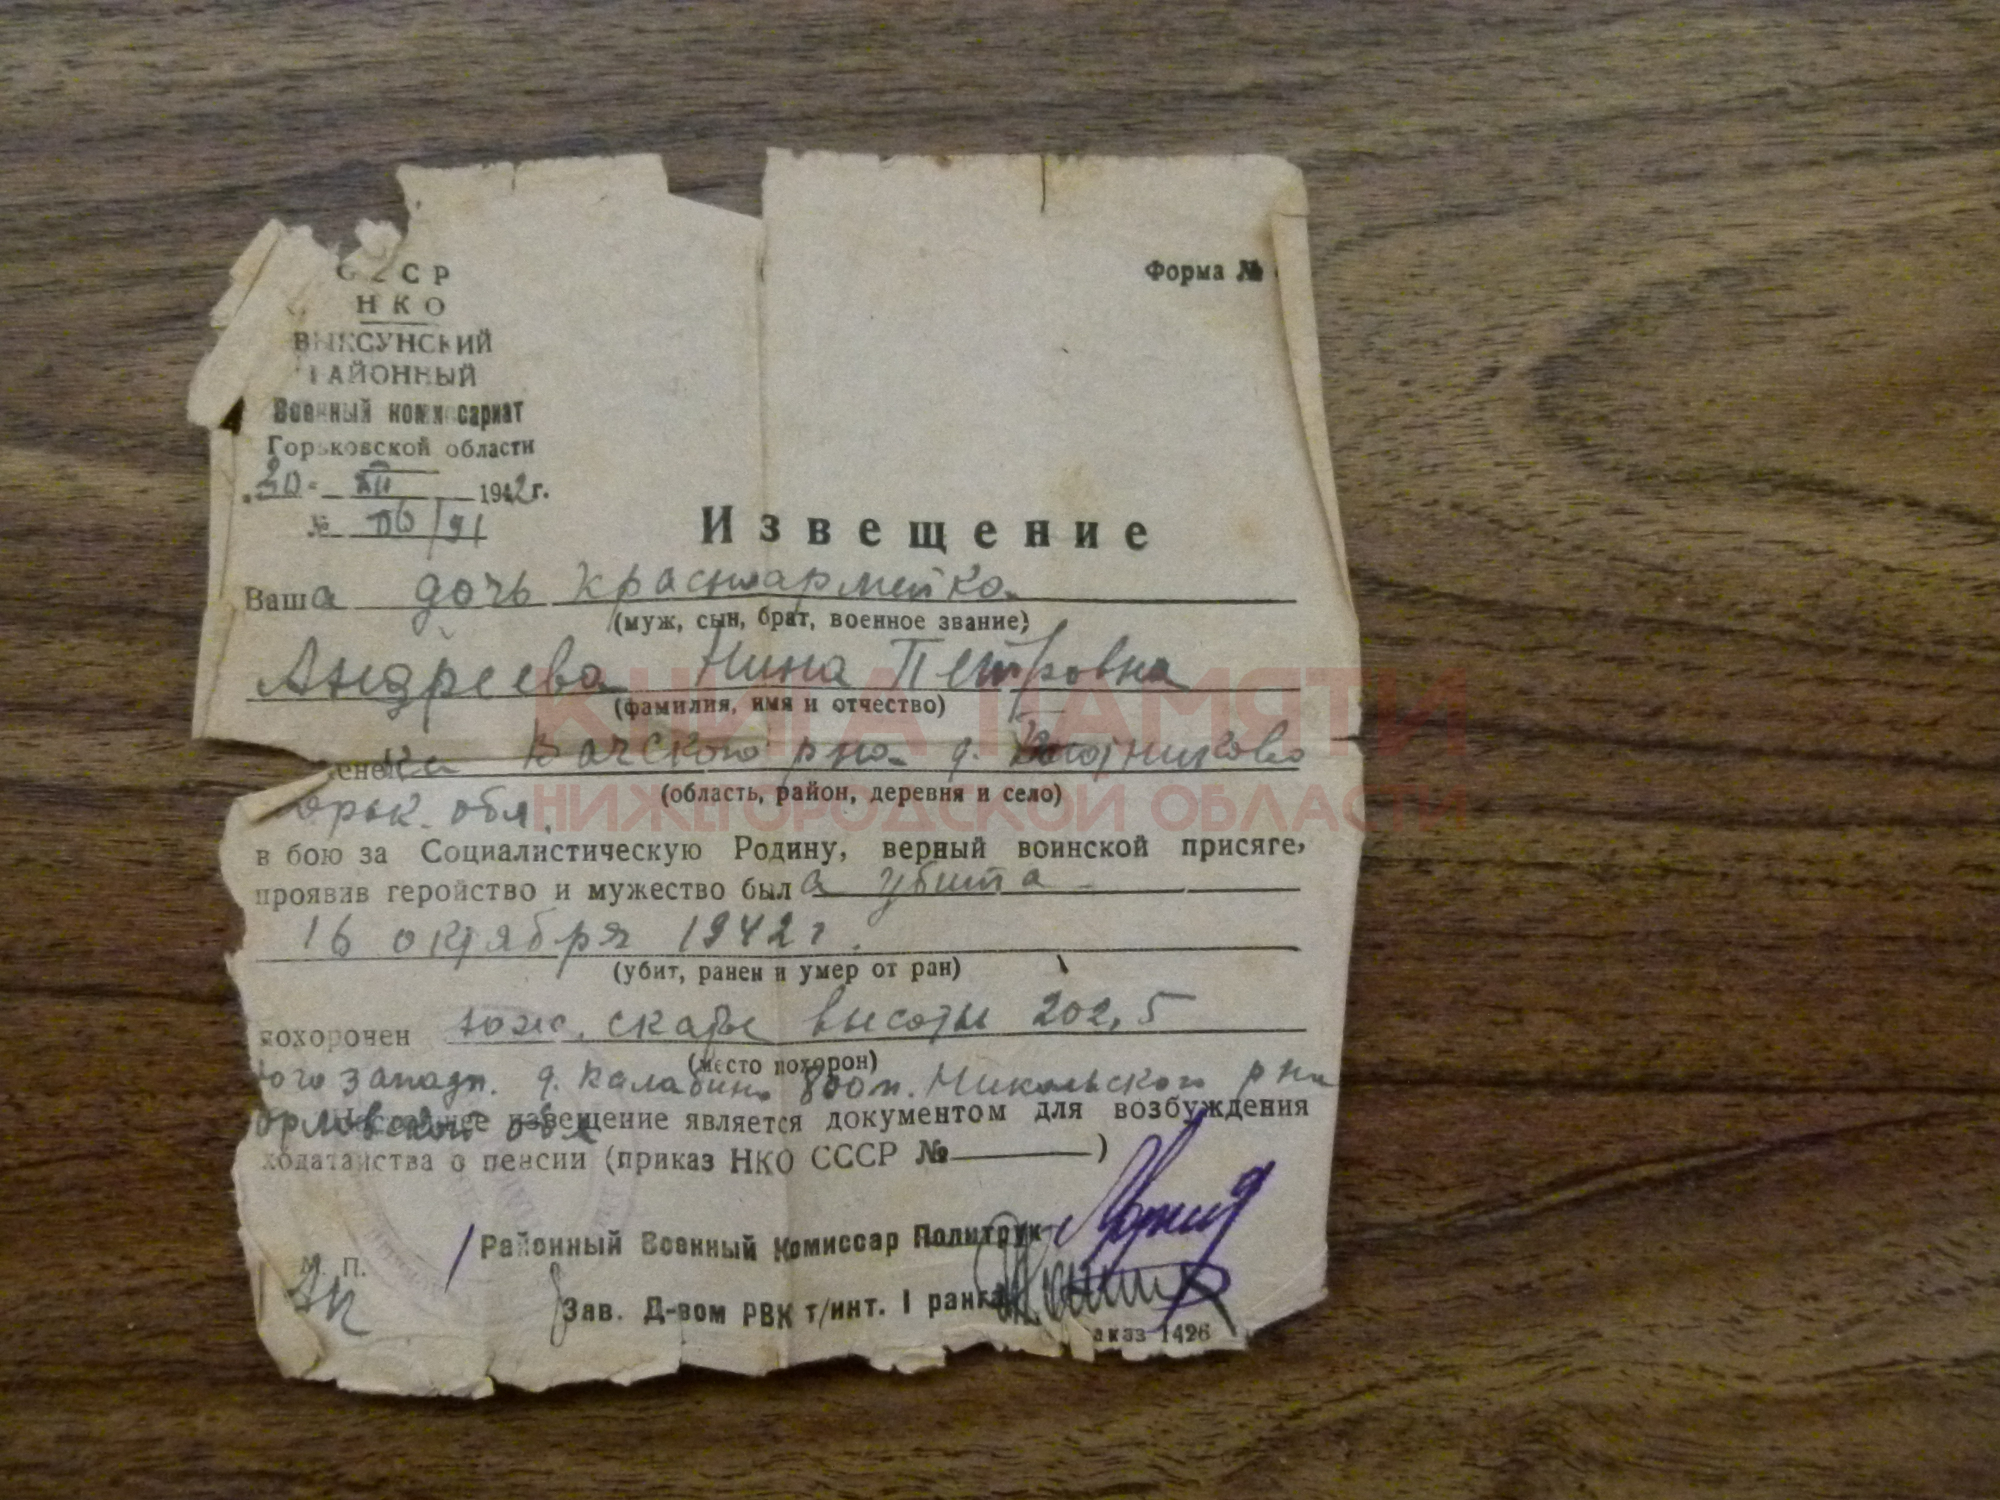 СССР
Форма №
НКО
ВЫКСУНСКИЙ
РАЙОННЫЙ
Военный комиссариат
Горьковской области
30 - XII 1942 г.
№
Извещение
Ваша дочь красноармейка
(муж, сын, брат, военное звание)
Андреева Нина Петровна
(фамилия, имя и отчество)
Вачского р-на д.
(область, район, деревня и село)
орьк. обл.
в бою за Социалистическую Родину, верный воинской присяге,
проявив геройство и мужество была убита
16 октября 1942 г.
(убит, ранен и умер от ран)
похоронен юж. скаты высоты 202,5
(место похорон)
юго запад. д. 800 м. Никольского р-на
Орловской обл
Настоящее извещение является документом для возбуждения
ходатайства о пенсии (приказ НКО СССР № )
Районный Военный Комиссар Политрук
М. П.
Зав. Д-вом РВК т/инт. I ранга
аказ 1426
КНИГА ПАМЯТИ
НИЖЕГОРОДСКОЙ ОБЛАСТИ